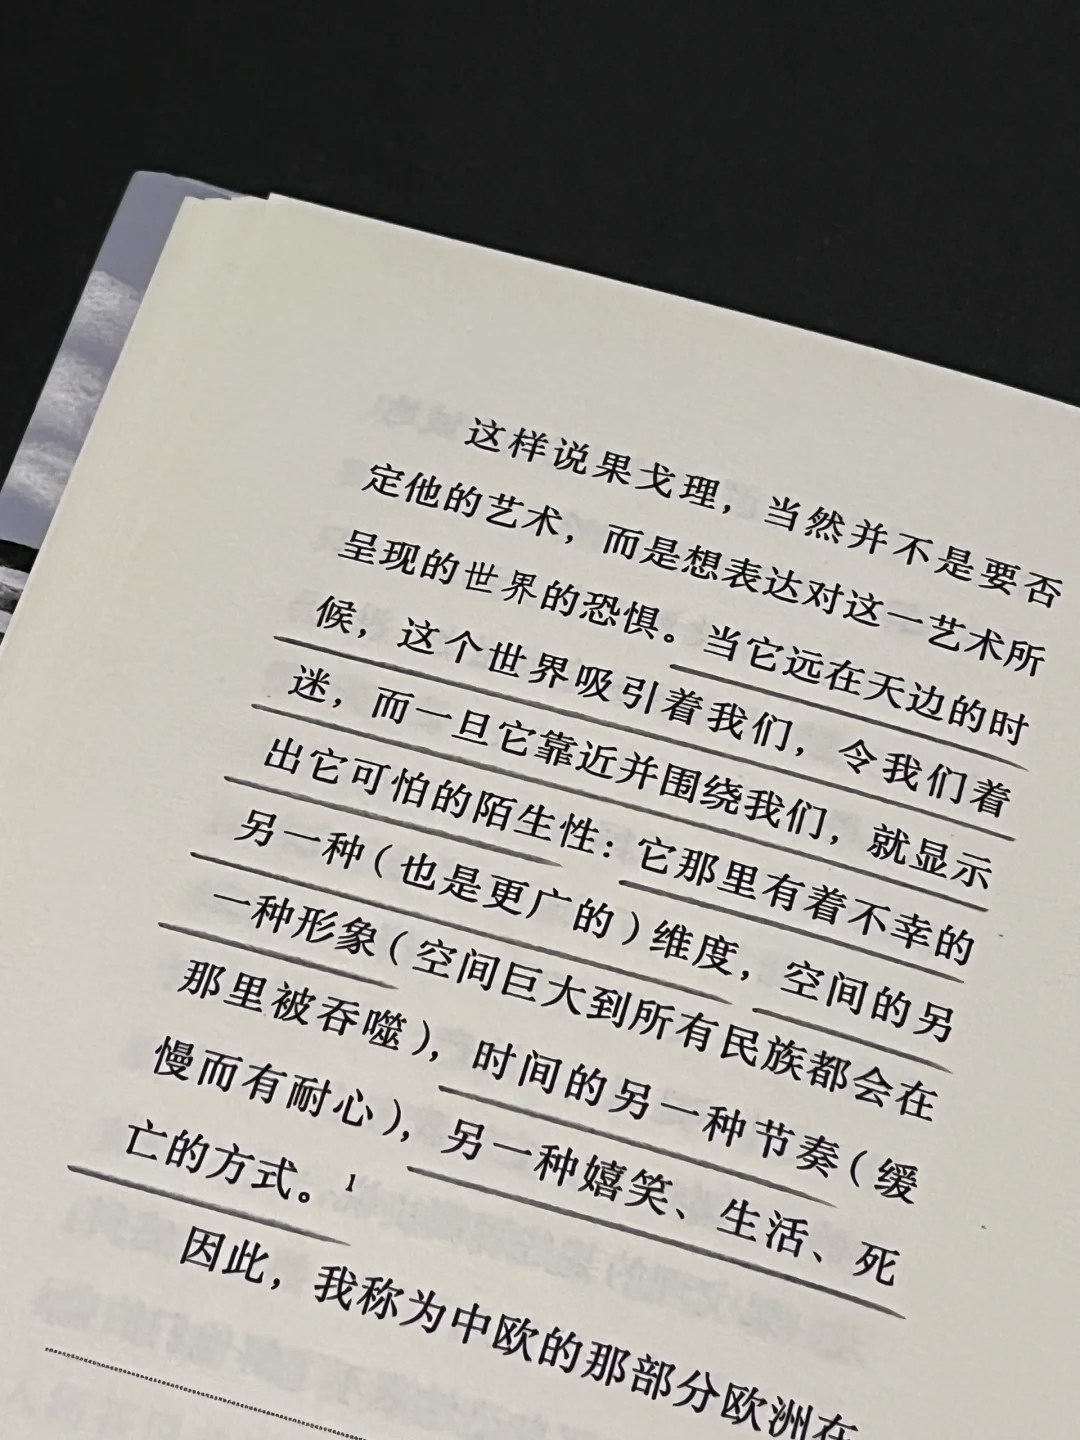 这样说果戈理，当然并不是要否
定他的艺术，而是想表达对这一艺术所
呈现的世界的恐惧。当它远在天边的时
候，这个世界吸引着我们，令我们着
迷，而一旦它靠近并围绕我们，就显示
出它可怕的陌生性：它那里有着不幸的
另一种（也是更广的）维度，空间的另
一种形象（空间巨大到所有民族都会在
那里被吞噬），时间的另一种节奏（缓
慢而有耐心），另一种嬉笑、生活、死
亡的方式。1
因此，我称为中欧的那部分欧洲在